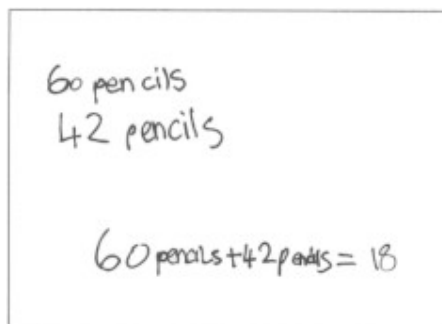 60 pencils
42 pencils
60 pencils+42 pencils = 18